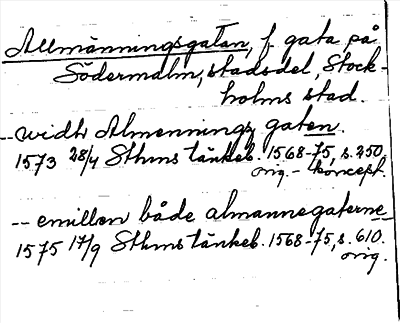 Allmänningsgatan, f. gata på
Södermalm, stadsdel, Stock-
holms stad.
-- widh Almennings gaten.
1573 28/4 Sthms tänkeb. 1568-75, s. 250.
orig. - koncept.
-- emillan både almannegaterne
1575 17/9 Sthms tänkeb. 1568-75, s. 610.
orig.